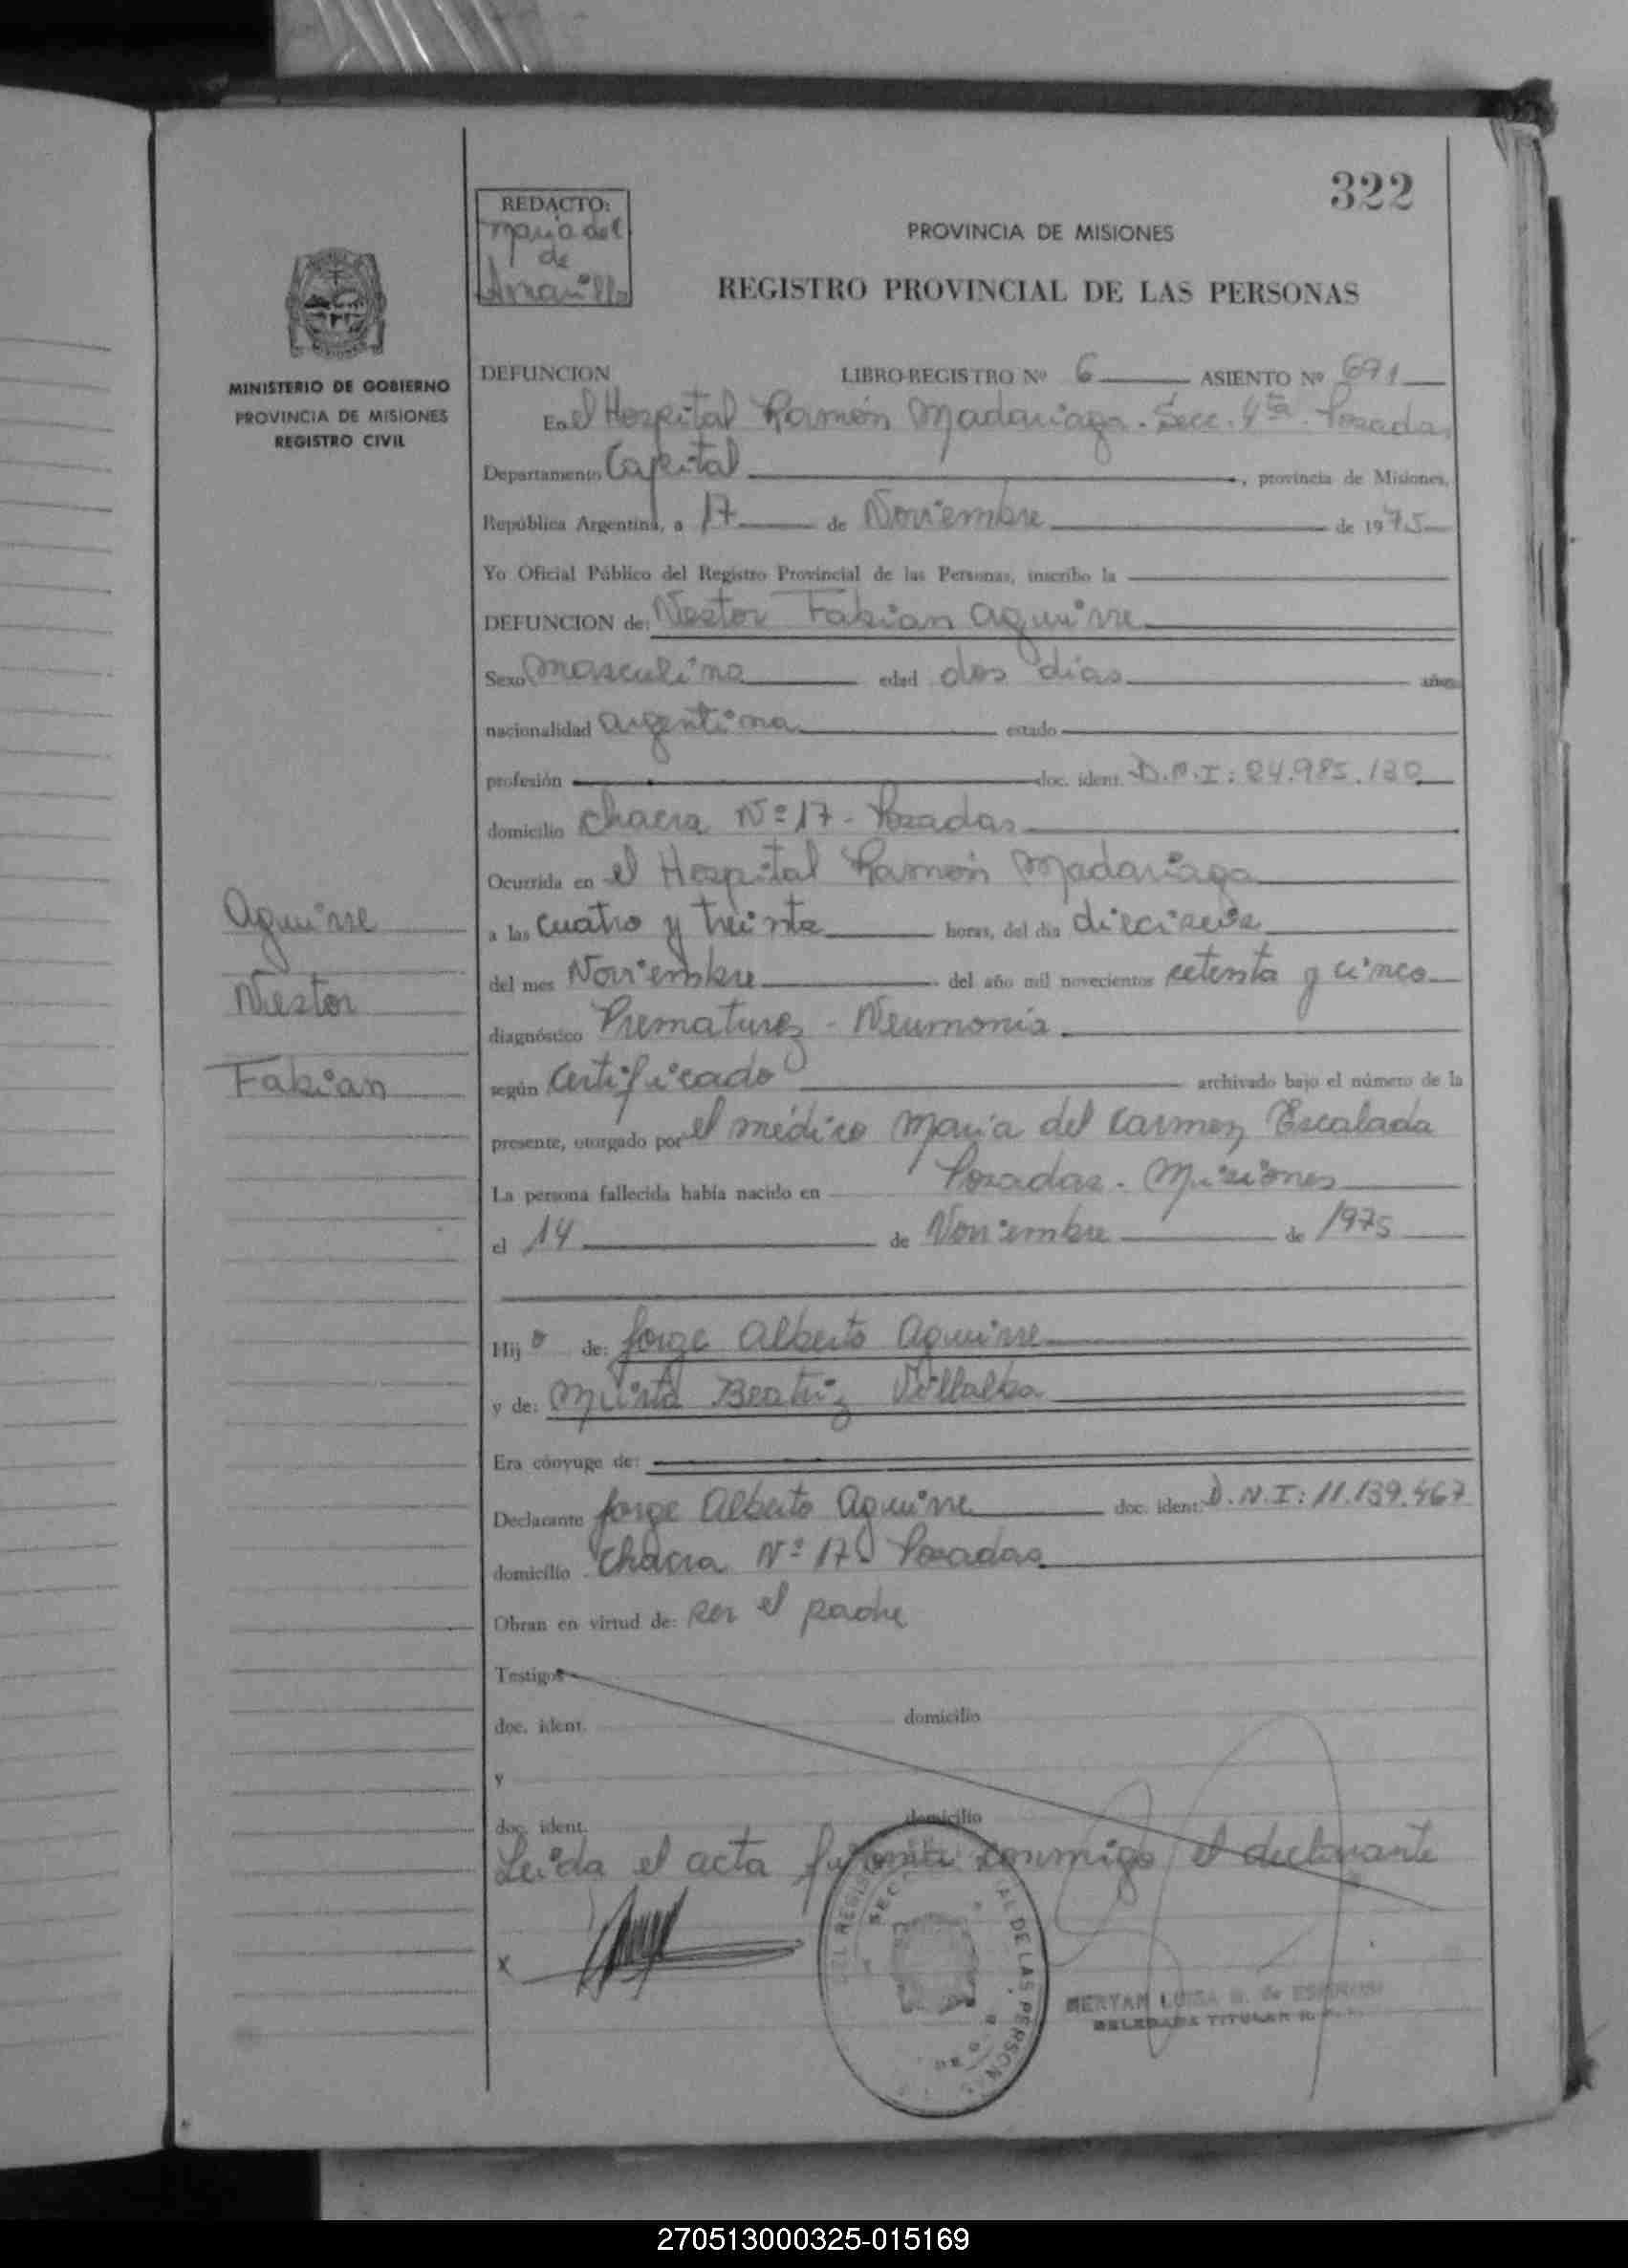 322
REDACTO:
Maria del
de
Amarilla
PROVINCIA DE MISIONES
REGISTRO PROVINCIAL DE LAS PERSONAS
MINISTERIO DE GOBIERNO
PROVINCIA DE MISIONES
REGISTRO CIVIL
DEFUNCION LIBRO-REGISTRO Nº 6 ASIENTO Nº 691
En el Hospital Ramón Madariaga. Secc. 4ta. Posadas
Departamento Capital, provincia de Misiones,
República Argentina, a 17 de Noviembre de 1975
Yo Oficial Público del Registro Provincial de las Personas, inscribo la
DEFUNCION de: Nestor Fabian Aguirre
Sexo masculino edad dos dias años
nacionalidad argentina estado
profesión doc. ident. D.N.I: 24.985.130
domicilio chacra Nº 17 - Posadas
Ocurrida en el Hospital Ramón Madariaga
a las cuatro y treinta horas, del dia dieciseis
del mes Noviembre del año mil novecientos setenta y cinco
diagnóstico Prematurez - Neumonia
según certificado archivado bajo el número de la
presente, otorgado por el médico Maria del Carmen Escalada
La persona fallecida había nacido en Posadas - Misiones
el 14 de Noviembre de 1975
Hijo de: Jorge Alberto Aguirre
y de: Mirta Beatriz Villalba
Era cónyuge de:
Declarante Jorge Alberto Aguirre doc. ident. D.N.I: 11.139.467
domicilio chacra Nº 17 - Posadas
Obran en virtud de: ser el padre
Testigos
doc. ident. domicilio
y
doc. ident. domicilio
Leida el acta firma conmigo el declarante
x
Aguirre
Nestor
Fabian
DEL REGIS AL DE LAS PERSON
SECC
MERYAN LUISA de
DELEGADA TITULAR
270513000325-015169